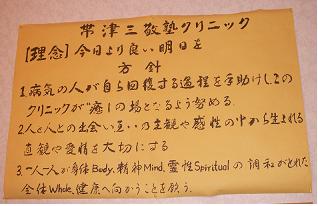 帯津三敬塾クリニック
[理念]今日より良い明日を
方針
1.病気の人が自ら回復する過程を手助けしこの
クリニックが"癒しの場となるよう努める.
2.人と人との出会い互いの主観や感性の中から生まれる
直観や愛情を大切にする
3.一人一人が身体Body、精神Mind、霊性Spiritualの調和がとれた
全体Whole、健康へ向かうことを願う.